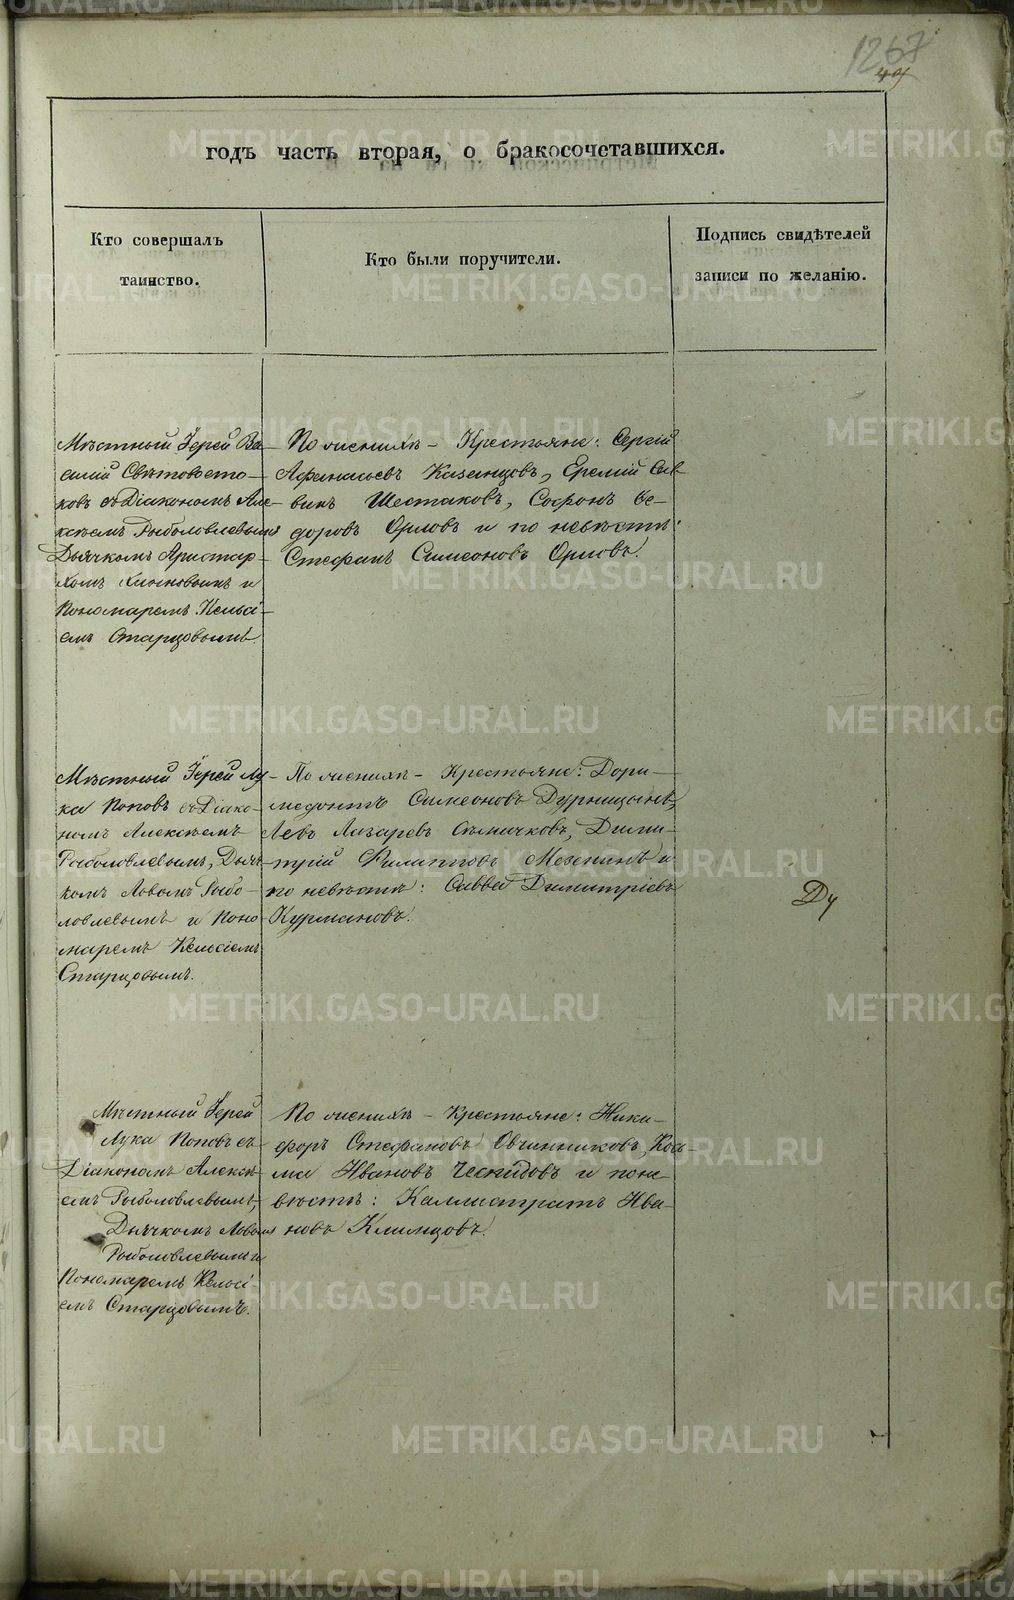 1267
49
годъ часть вторая, о бракосочетавшихся.
Кто совершалъ
таинство.
Кто были поручители.
Подпись свидѣтелей
записи по желанію.
Мѣстный Іерей Ва-
силій Свѣтовосто-
ковъ съ Діакономъ Але-
ксѣемъ Рыболовлевымъ
Дьячкомъ Аристар-
хомъ и
Пономаремъ Кельсі-
емъ Старцовымъ
По женихѣ - Крестьяне: Сергій
Афанасьевъ Казанцовъ, Еремій Сав-
винъ Шестаковъ, Софонъ Ѳе-
доровъ Орловъ и по невѣстѣ:
Стефанъ Симеоновъ Орловъ.
Мѣстный Іерей Лу-
ка Поповъ съ Діако-
номъ Алексѣемъ
Рыболовлевымъ, Дьяч-
комъ Львомъ Рыбо-
ловлевымъ и Поно-
маремъ Кельсіемъ
Старцовымъ.
По женихѣ - Крестьяне: Дори-
медонтъ Симеоновъ Дурницынъ,
Левъ Лазаревъ Сѣмичковъ, Дими-
трій Филипповъ Мезенинъ и
по невѣстѣ: Савва Димитріевъ
Курмановъ.
Ду
Мѣстный Іерей
Лука Поповъ съ
Діакономъ Алексѣ-
емъ Рыболовлевымъ,
Дьячкомъ Львомъ
Рыболовлевымъ и
Пономаремъ Кельсі-
емъ Старцовымъ.
По женихѣ - Крестьяне: Ники-
форъ Стефановъ Овчинниковъ, Кось-
ма Ивановъ и по не-
вѣстѣ: Каллистратъ Ива-
новъ Климцовъ.
METRIKI.GASO-URAL.RU